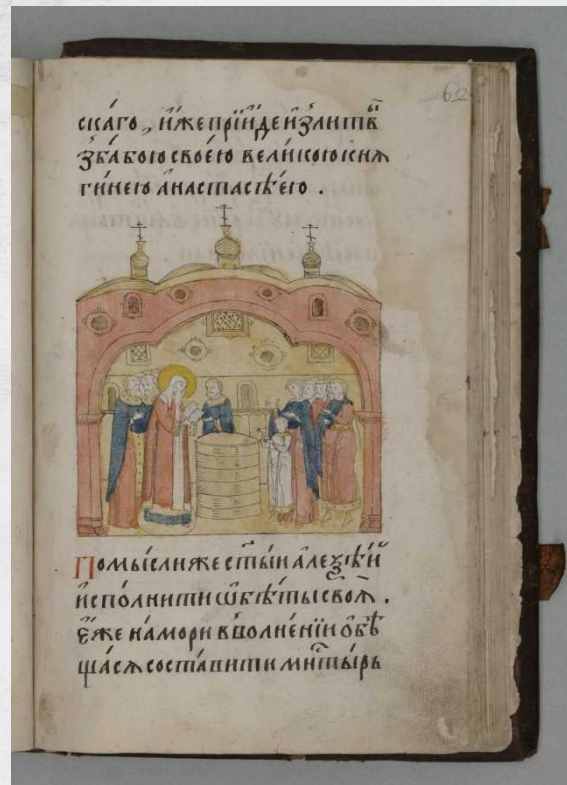 62
ска́го , и҆́же прїи́де и҆з̾ литвы̀
з̾ ба́бою свое́ю вели́кою кня
ги́нею а҆настасі́ею .
Помы́сли же ст҃ы́и а҆леѯѣ́й
и҆спо́лнити ѡ҆бѣ́ты своѧ̀ .
е҆́же на мори в̾ волне́нїи ѻ҆бѣ
ща́сѧ соста́вити мн҃ты́рь